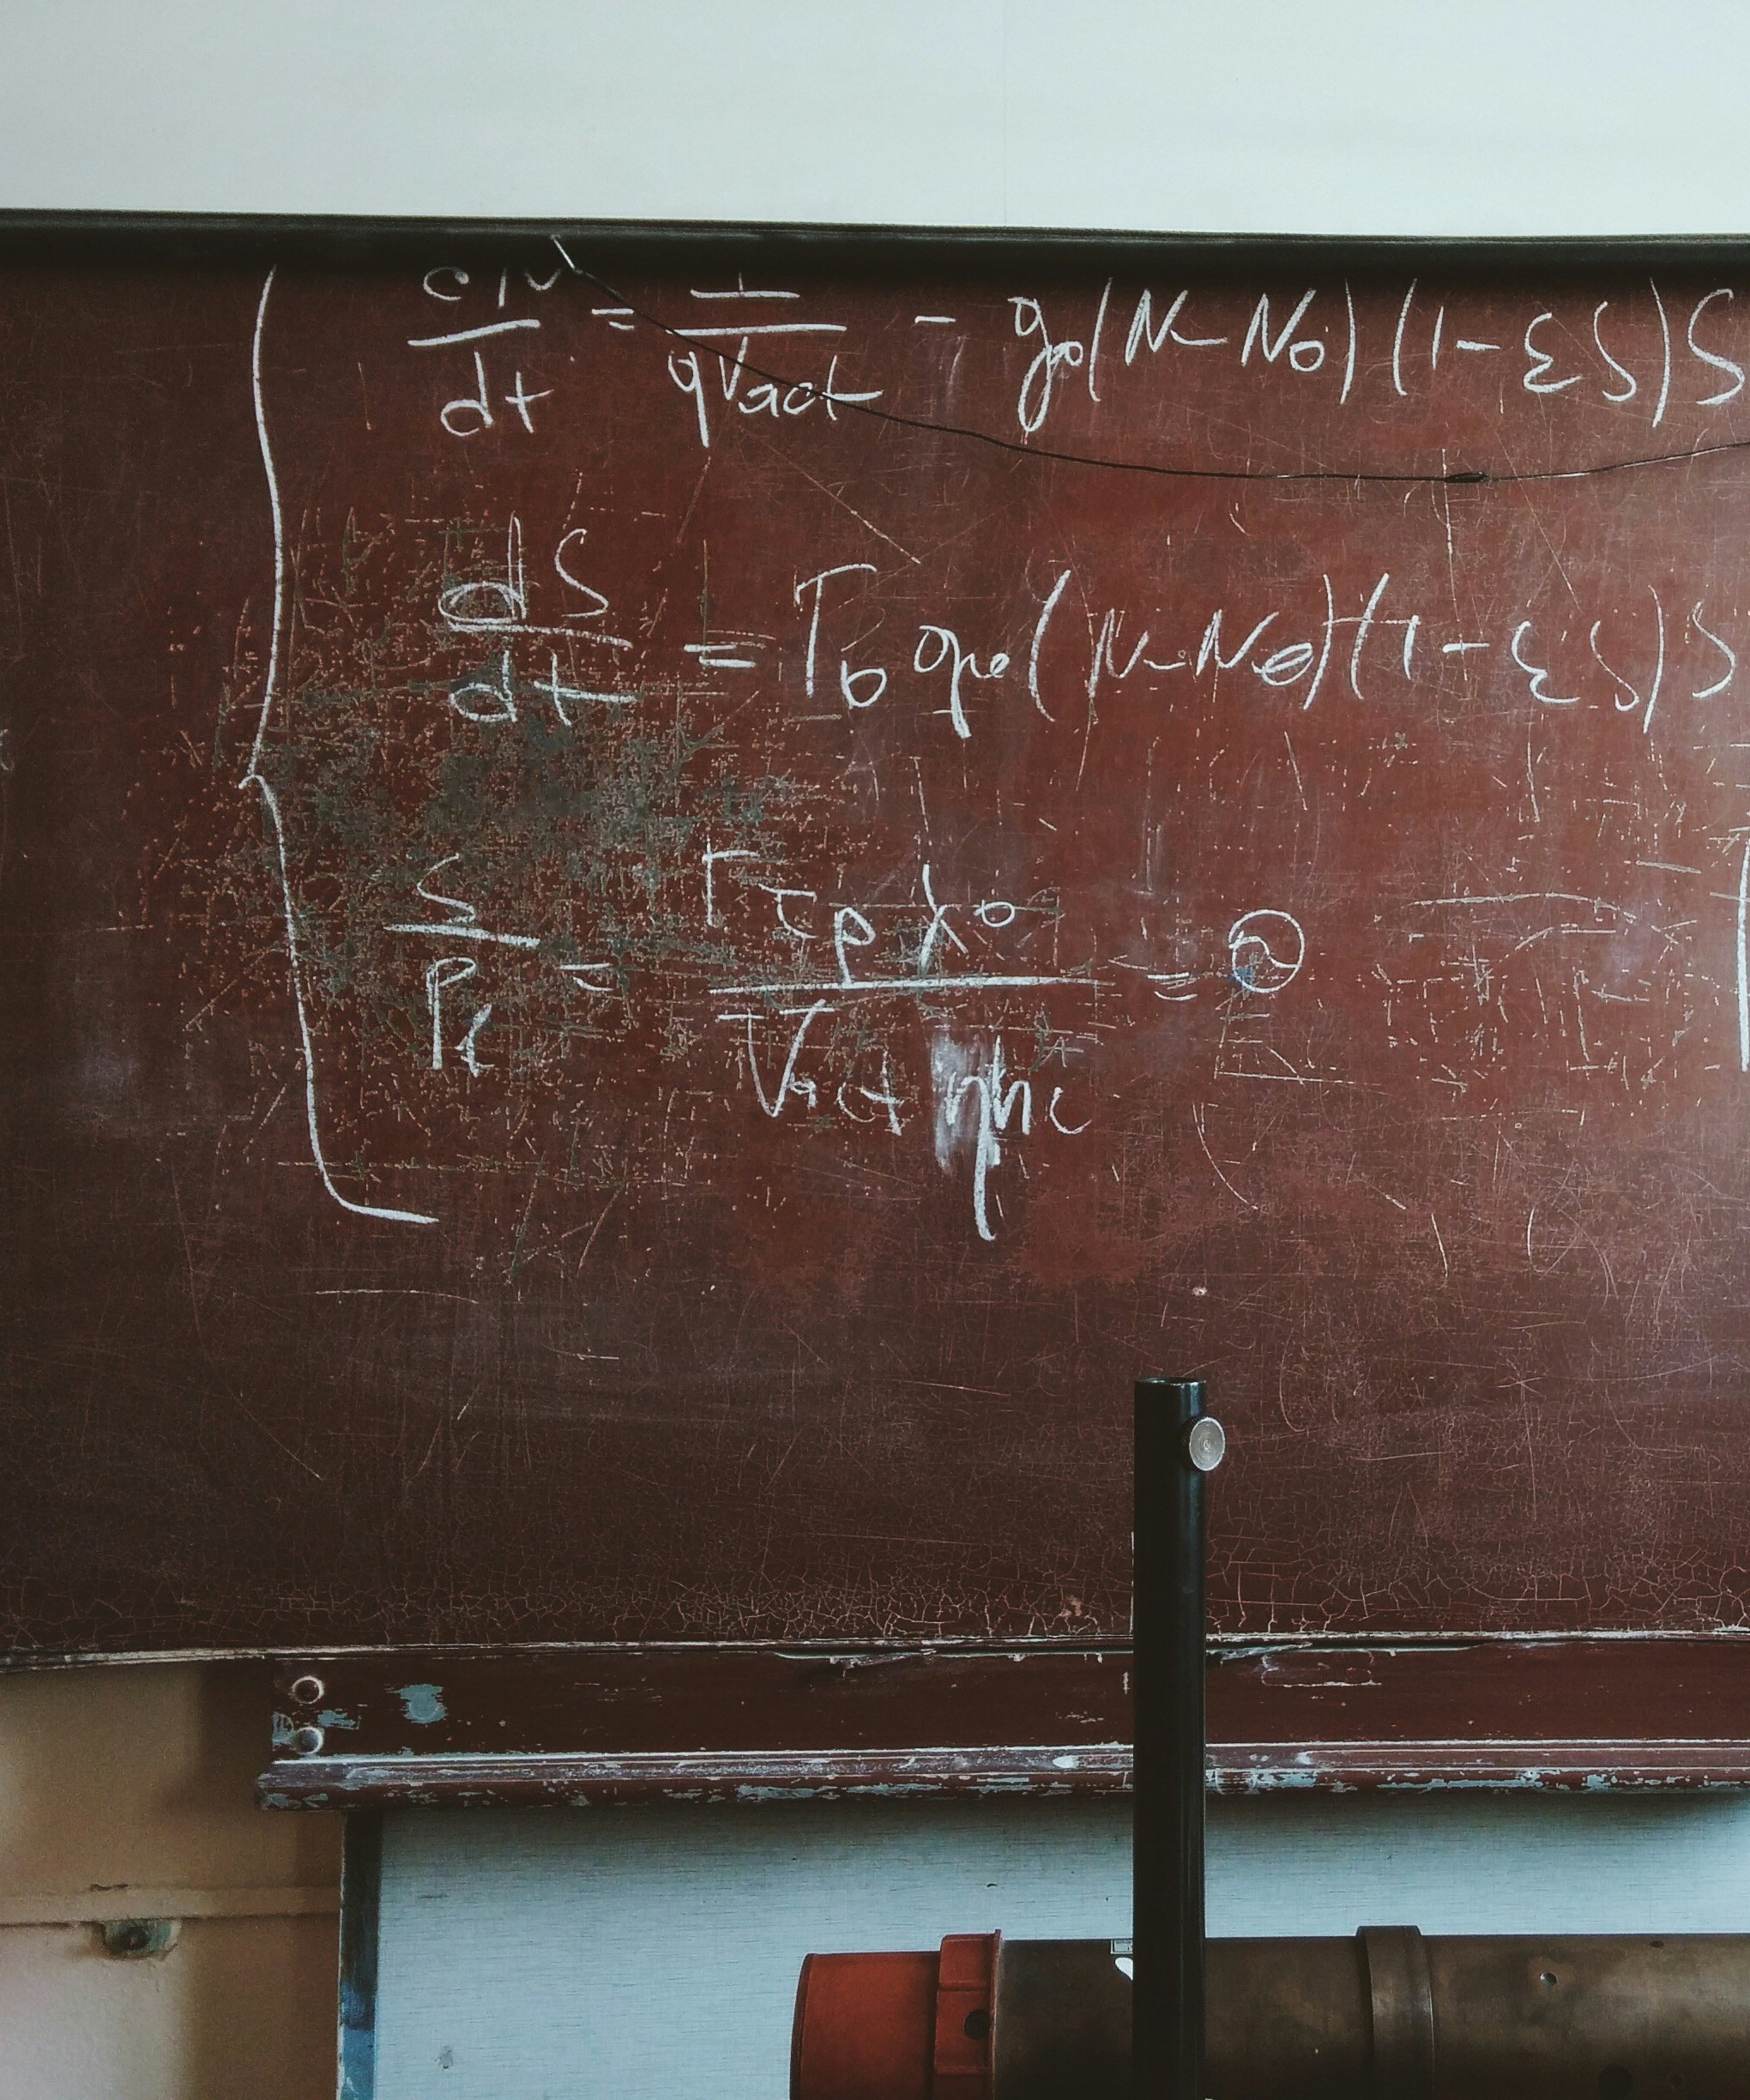 dN/dt = I/(qVact) - g0(N-N0)(1-εS)S
dS/dt = Γ0 g0(N-N0)(1-εS)S
S/Pf = Γτpλ0/(Vact ηhc) =